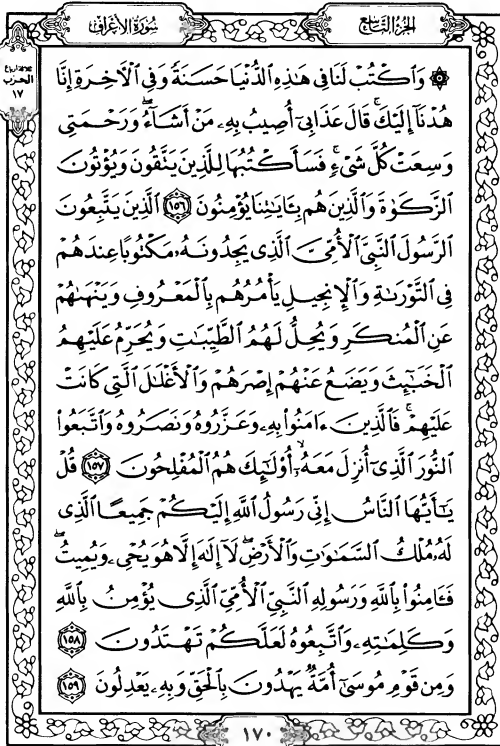 الجزء التاسع
سورة الأعراف
الحزب
١٧
۞ وَٱكۡتُبۡ لَنَا فِي هَٰذِهِ ٱلدُّنۡيَا حَسَنَةٗ وَفِي ٱلۡأٓخِرَةِ إِنَّا
هُدۡنَآ إِلَيۡكَۚ قَالَ عَذَابِيٓ أُصِيبُ بِهِۦ مَنۡ أَشَآءُۖ وَرَحۡمَتِي
وَسِعَتۡ كُلَّ شَيۡءٖۚ فَسَأَكۡتُبُهَا لِلَّذِينَ يَتَّقُونَ وَيُؤۡتُونَ
ٱلزَّكَوٰةَ وَٱلَّذِينَ هُم بِـَٔايَٰتِنَا يُؤۡمِنُونَ ١٥٦ ٱلَّذِينَ يَتَّبِعُونَ
ٱلرَّسُولَ ٱلنَّبِيَّ ٱلۡأُمِّيَّ ٱلَّذِي يَجِدُونَهُۥ مَكۡتُوبًا عِندَهُمۡ
فِي ٱلتَّوۡرَىٰةِ وَٱلۡإِنجِيلِ يَأۡمُرُهُم بِٱلۡمَعۡرُوفِ وَيَنۡهَىٰهُمۡ
عَنِ ٱلۡمُنكَرِ وَيُحِلُّ لَهُمُ ٱلطَّيِّبَٰتِ وَيُحَرِّمُ عَلَيۡهِمُ
ٱلۡخَبَٰٓئِثَ وَيَضَعُ عَنۡهُمۡ إِصۡرَهُمۡ وَٱلۡأَغۡلَٰلَ ٱلَّتِي كَانَتۡ
عَلَيۡهِمۡۚ فَٱلَّذِينَ ءَامَنُواْ بِهِۦ وَعَزَّرُوهُ وَنَصَرُوهُ وَٱتَّبَعُواْ
ٱلنُّورَ ٱلَّذِيٓ أُنزِلَ مَعَهُۥٓ أُوْلَٰٓئِكَ هُمُ ٱلۡمُفۡلِحُونَ ١٥٧ قُلۡ
يَٰٓأَيُّهَا ٱلنَّاسُ إِنِّي رَسُولُ ٱللَّهِ إِلَيۡكُمۡ جَمِيعًا ٱلَّذِي
لَهُۥ مُلۡكُ ٱلسَّمَٰوَٰتِ وَٱلۡأَرۡضِۖ لَآ إِلَٰهَ إِلَّا هُوَ يُحۡيِۦ وَيُمِيتُۖ
فَـَٔامِنُواْ بِٱللَّهِ وَرَسُولِهِ ٱلنَّبِيِّ ٱلۡأُمِّيِّ ٱلَّذِي يُؤۡمِنُ بِٱللَّهِ
وَكَلِمَٰتِهِۦ وَٱتَّبِعُوهُ لَعَلَّكُمۡ تَهۡتَدُونَ ١٥٨
وَمِن قَوۡمِ مُوسَىٰٓ أُمَّةٞ يَهۡدُونَ بِٱلۡحَقِّ وَبِهِۦ يَعۡدِلُونَ ١٥٩
١٧٠